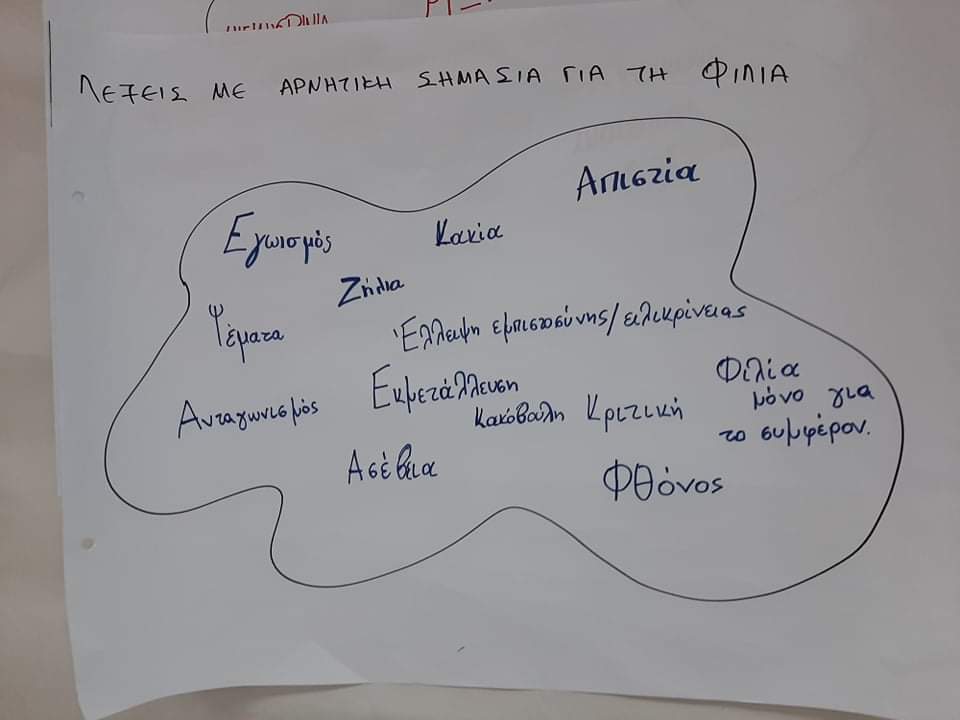 ΛΕΞΕΙΣ ΜΕ ΑΡΝΗΤΙΚΗ ΣΗΜΑΣΙΑ ΓΙΑ ΤΗ ΦΙΛΙΑ
Απιστία
Εγωισμός
Κακία
Ζήλια
Ψέματα
Έλλειψη εμπιστοσύνης/ειλικρίνειας
Εκμετάλλευση
Φιλία
μόνο για
το συμφέρον.
Ανταγωνισμός
κακόβουλη Κριτική
Ασέβεια
Φθόνος